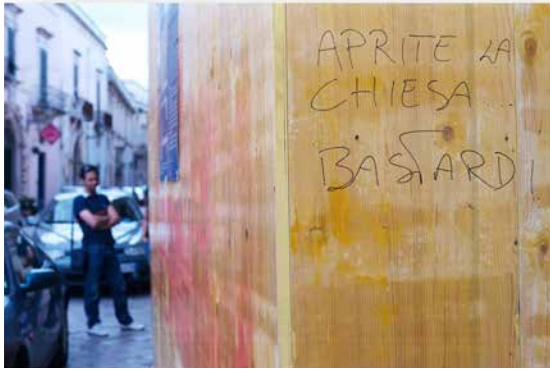 APRITE LA
CHIESA...
BASTARDI